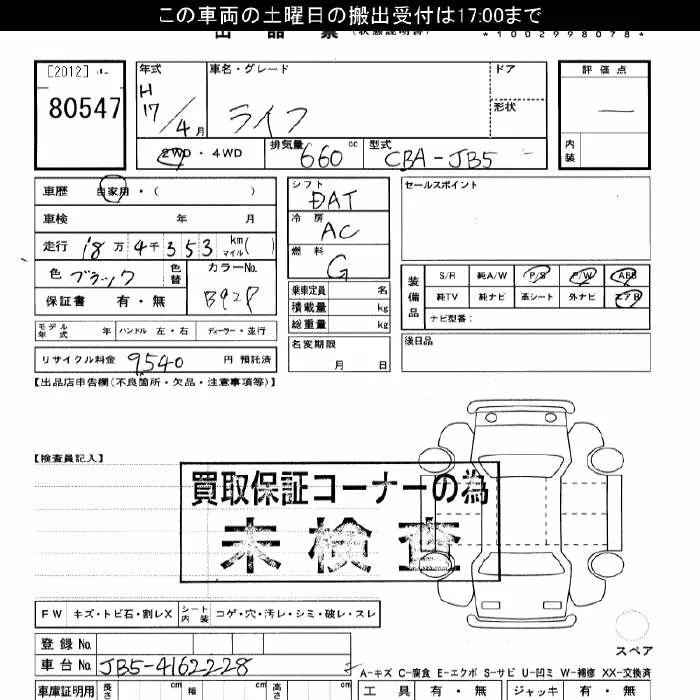 この車両の土曜日の搬出受付は17:00まで
出品票 (状態説明書) *1002998078*
[2012]
80547
年式 H17/4月
車名・グレード ライフ
ドア
形状
評価点 —
内装
2WD・4WD 排気量 660 cc 型式 CBA-JB5
車歴 自家用・( )
車検 年 月
走行 18万4千353 km マイル( )
色 ブラック 色替 カラーNo. B92P
保証書 有・無
シフト DAT
冷房 AC
燃料 G
乗車定員 名
積載量 kg
総重量 kg
名変期限 月 日
セールスポイント
装備品 S/R 純A/W P/S P/W ABS
純TV 純ナビ 革シート 外ナビ エアB
ナビ型番:
後日品
モデル年式 年 ハンドル 左・右 ディーラー・並行
リサイクル料金 9540 円 預託済
【出品店申告欄(不良箇所・欠品・注意事項等)】
【検査員記入】
買取保証コーナーの為
未検査
FW キズ・トビ石・割レX シート内装 コゲ・穴・汚レ・シミ・破レ・スレ
スペア
登録No.
車台No. JB5-4162228
A-キズ C-腐食 E-エクボ S-サビ U-凹ミ W-補修 XX-交換済
車庫証明用 長さ cm 幅 cm 高さ cm 工具 有・無 ジャッキ 有・無